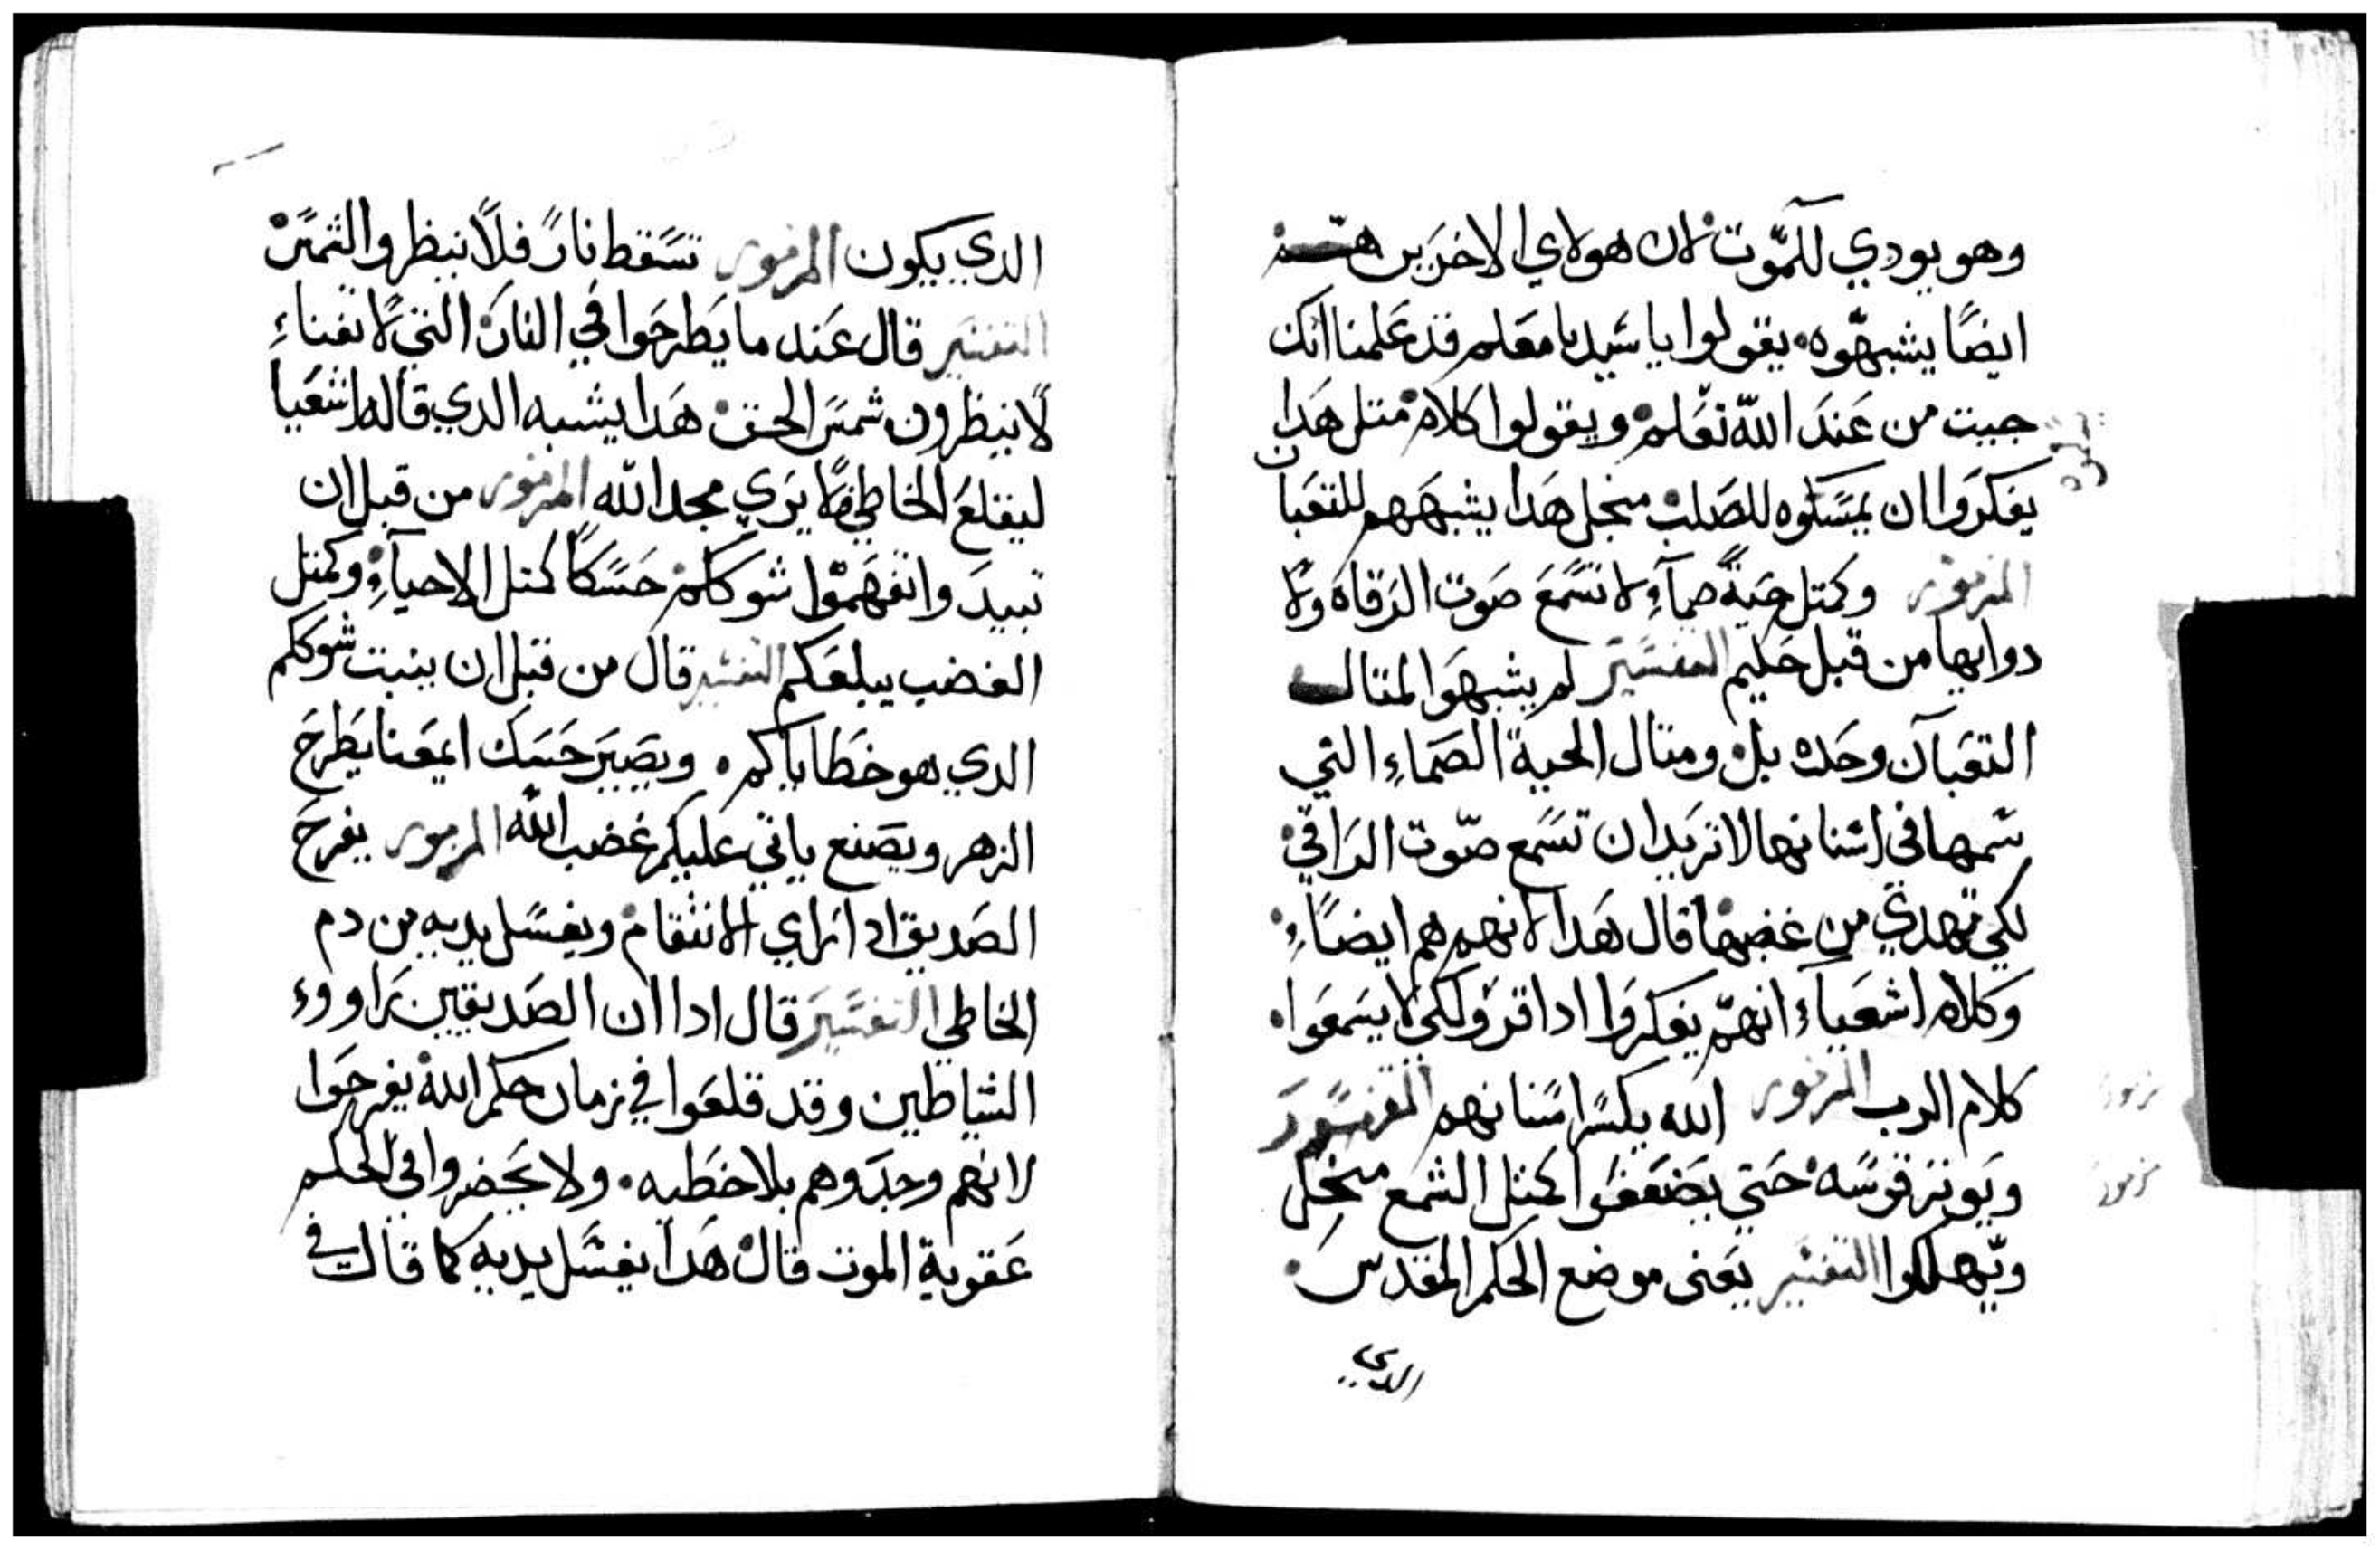 وهو يودي للمّوت لان هولاي الاخرين هم
ايضًا يشبهّوه يقولوا يا سَيد يا معَلم قد عَلمنا انك
جيت من عَندَ اللّه تعَلم ويقولوا كلام متل هَدا
يفكروَا ان يمسَكوَه للصَلب منجل هَدا يشبهَهم للتعَبان
المزمور وكمتل حَيةً صمآءِ لا تسَمعَ صَوت الرَقاه ولا
دوابها من قبل حَكيم التفسَير لم يشبهَوا لمتال
التعَبان وحَده بل ومتال الحية الصَماءِ التي
سَمها في اسَنانها لا تريَد ان تسَمع صّوت الرَاقي
لكي تهدي من غضبها قال هَدا لانهم هم ايضًاءِ
وَكلام اشعَياءِ انهمّ يفكروَا ادا قروَ لكي لا يسَمعَوا
كلام الرب المزمور اللّه يكسَر اسَنانهم المزمور
وَيوتر قوسَه حَتي يضَعَفوَا كمتل الشمع منحَل
ويّهلكوا التفسَير يعَني موضع الحكم المقدس
الدي
الدي يكون المزمور تسَقط نارً فلاَ ينظروا الشمسَ
التفسَير قال عَند ما يَطرحَوا في النارَ التي لا تفناءِ
لا ينظرون شمسَ الحق هَدا يشبه الدي قاله اشعَيا
ليقلعَ الخاطي لا يرَي مجد اللّه المزمور من قبل ان
تبيدَ وا تفهَموّا شوككم حَسَكًا كمتل الاحيآءِ وكمتل
الغضب يبلعَكم التفسير قال من قبل ان ينبت شوككم
الدي هو خطَاياكم ويصَيرَ حَسَك ايمعَنا يَطرحَ
الزهر ويصَنع ياتي عليكم غضب اللّه المزمور يفرحَ
الصَديق ادا رَاي الانتقام ويغسَل يديه من دم
الخاطي التفسَيرَ قال ادا ان الصَديقين رَاووءِ
الشياطين وقد قلعَوا في زمان حكم اللّه يفرحَوا
لانهم وجدَوهم بلا خطَيه ولا يحَضروا في الحكم
عَقوبة الموت قال هَدا يغسَل يديه كما قال في